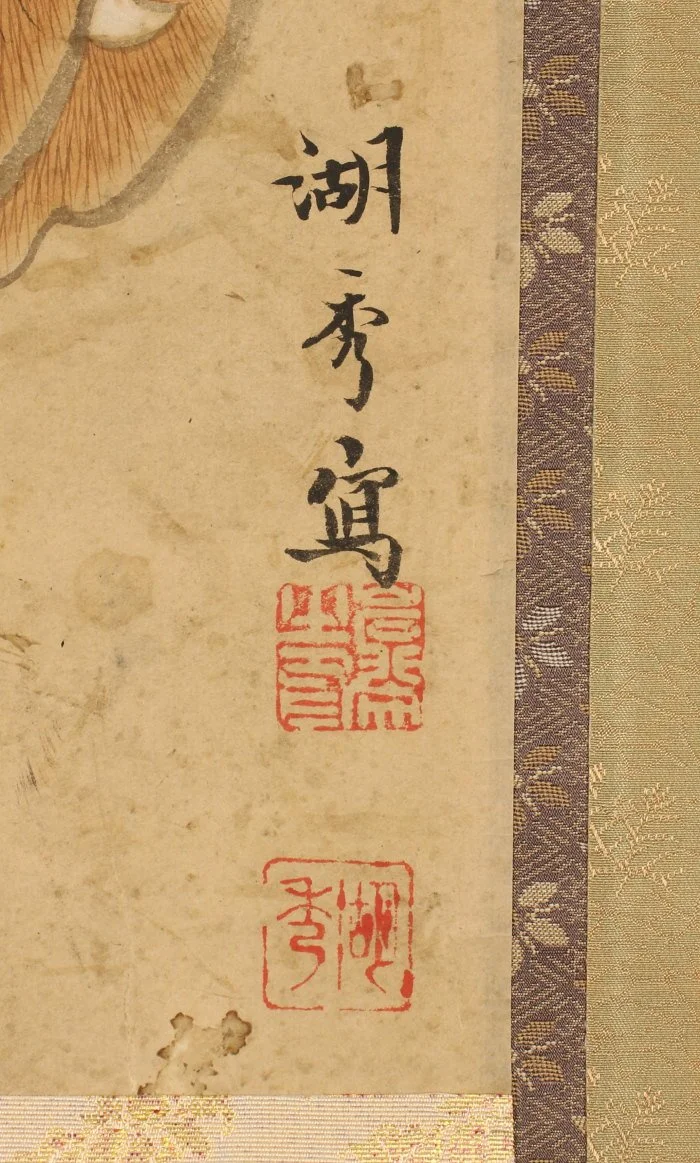 湖秀寫
湖秀